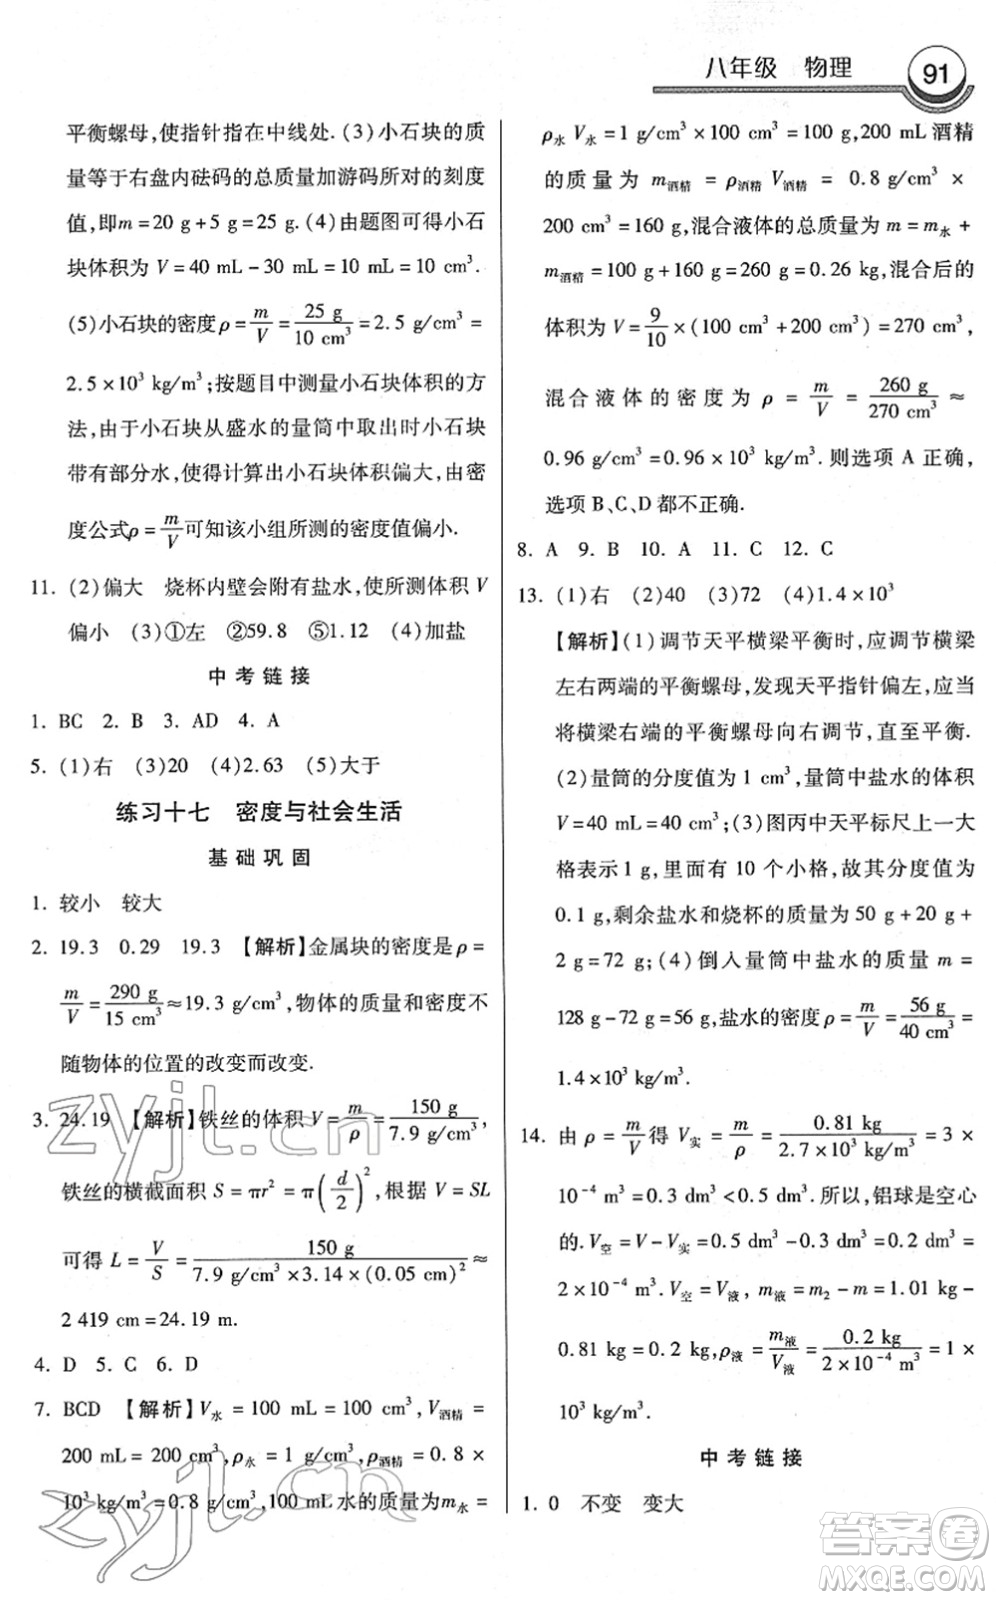 八年级 物理 91
平衡螺母,使指针指在中线处.(3)小石块的质
量等于右盘内砝码的总质量加游码所对的刻度
值,即m=20 g+5 g=25 g.(4)由题图可得小石
块体积为 V=40 mL-30 mL=10 mL=10 cm³.
(5)小石块的密度ρ=m/V=25 g/10 cm³=2.5 g/cm³=
2.5×10³ kg/m³;按题目中测量小石块体积的方
法,由于小石块从盛水的量筒中取出时小石块
带有部分水,使得计算出小石块体积偏大,由密
度公式ρ=m/V可知该小组所测的密度值偏小.
11. (2)偏大 烧杯内壁会附有盐水,使所测体积 V
偏小 (3)①左 ②59.8 ⑤1.12 (4)加盐
中考链接
1. BC 2. B 3. AD 4. A
5. (1)右 (3)20 (4)2.63 (5)大于
练习十七 密度与社会生活
基础巩固
1. 较小 较大
2. 19.3 0.29 19.3 【解析】金属块的密度是ρ=
m/V=290 g/15 cm³≈19.3 g/cm³,物体的质量和密度不
随物体的位置的改变而改变.
3. 24.19 【解析】铁丝的体积 V=m/ρ=150 g/7.9 g/cm³,
铁丝的横截面积 S=πr²=π(d/2)²,根据 V=SL
可得 L=V/S=150 g/7.9 g/cm³×3.14×(0.05 cm)²≈
2 419 cm=24.19 m.
4. D 5. C 6. D
7. BCD 【解析】V水=100 mL=100 cm³,V酒精=
200 mL=200 cm³,ρ水=1 g/cm³,ρ酒精=0.8×
10³ kg/m³=0.8 g/cm³,100 mL 水的质量为m水=
ρ水 V水=1 g/cm³×100 cm³=100 g,200 mL 酒精
的质量为 m酒精=ρ酒精 V酒精=0.8 g/cm³×
200 cm³=160 g,混合液体的总质量为 m=m水+
m酒精=100 g+160 g=260 g=0.26 kg,混合后的
体积为 V=9/10×(100 cm³+200 cm³)=270 cm³,
混合液体的密度为 ρ=m/V=260 g/270 cm³≈
0.96 g/cm³=0.96×10³ kg/m³.则选项 A 正确,
选项 B、C、D 都不正确.
8. A 9. B 10. A 11. C 12. C
13. (1)右 (2)40 (3)72 (4)1.4×10³
【解析】(1)调节天平横梁平衡时,应调节横梁
左右两端的平衡螺母,发现天平指针偏左,应当
将横梁右端的平衡螺母向右调节,直至平衡.
(2)量筒的分度值为 1 cm³,量筒中盐水的体积
V=40 mL=40 cm³;(3)图丙中天平标尺上一大
格表示1 g,里面有 10 个小格,故其分度值为
0.1 g,剩余盐水和烧杯的质量为 50 g+20 g+
2 g=72 g;(4)倒入量筒中盐水的质量 m=
128 g-72 g=56 g,盐水的密度ρ=m/V=56 g/40 cm³=
1.4×10³ kg/m³.
14. 由 ρ=m/V得 V实=m/ρ=0.81 kg/2.7×10³ kg/m³=3×
10⁻⁴ m³=0.3 dm³<0.5 dm³.所以,铝球是空心
的.V空=V-V实=0.5 dm³-0.3 dm³=0.2 dm³=
2×10⁻⁴ m³.V空=V液,m液=m₂-m=1.01 kg-
0.81 kg=0.2 kg,ρ液=m液/V液=0.2 kg/2×10⁻⁴ m³=1×
10³ kg/m³.
中考链接
1. 0 不变 变大
zyjl.cn
zyjl.cn
答案圈
MXQE.COM